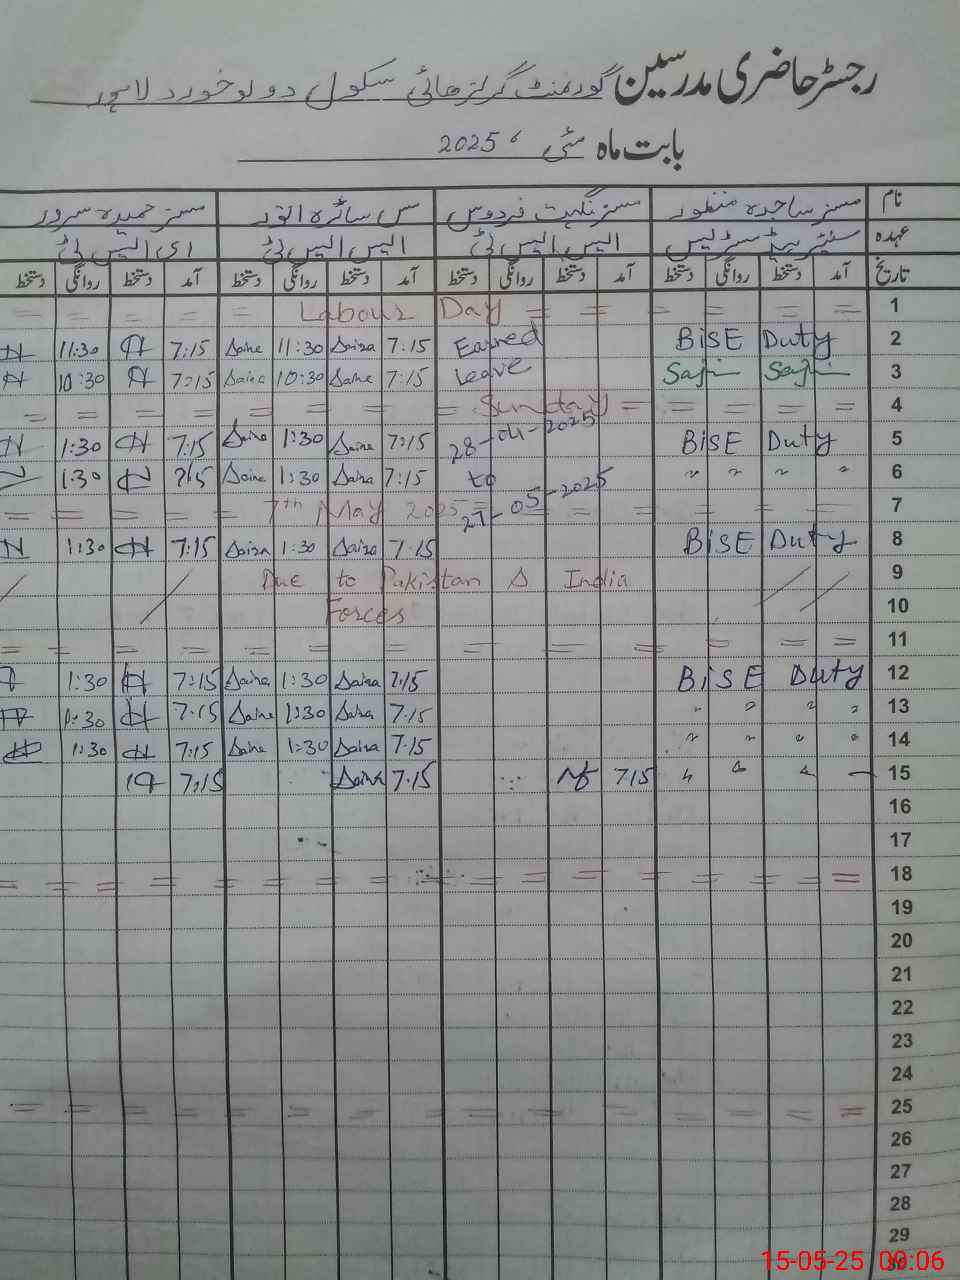 رجسٹر حاضری مدرسین گورنمنٹ گرلز ہائی سکول دولو خورد لاہور
بابت ماہ مئی، 2025
نام مسز ساجدہ منظور مسز نگہت فردوس مس سائرہ انور مسز حمیدہ سرور
عہدہ سینئر ہیڈ مسٹریس ایس ایس ٹی ایس ایس ٹی ای ایس ٹی
تاریخ آمد دستخط روانگی دستخط آمد دستخط روانگی دستخط آمد دستخط روانگی دستخط آمد دستخط روانگی دستخط
= = = = = Labour Day = = = = = = 1
11:30 7:15 Saira 11:30 Saira 7:15 Earned BISE Duty 2
10:30 7:15 Saira 10:30 Saira 7:15 Leave 3
= = = = = = = = Sunday = = = = = 4
1:30 7:15 Saira 1:30 Saira 7:15 28-04-2025 BISE Duty 5
1:30 7:15 Saira 1:30 Saira 7:15 to " " " " 6
= = = = = 7th May 2025 = 27-05-2025 = = = = = 7
1:30 7:15 Saira 1:30 Saira 7:15 BISE Duty 8
Due to Pakistan & India 9
Forces 10
= = = = = = = = = = = = = = 11
1:30 7:15 Saira 1:30 Saira 7:15 BISE Duty 12
1:30 7:15 Saira 1:30 Saira 7:15 " " " " 13
1:30 7:15 Saira 1:30 Saira 7:15 " " " " 14
7:15 Saira 7:15 7:15 " " " 15
16
17
= = = = = = = = = = = = = = = = 18
19
20
21
22
23
24
= = = = = = = = = = = = = = = = 25
26
27
28
29
15-05-25 09:06